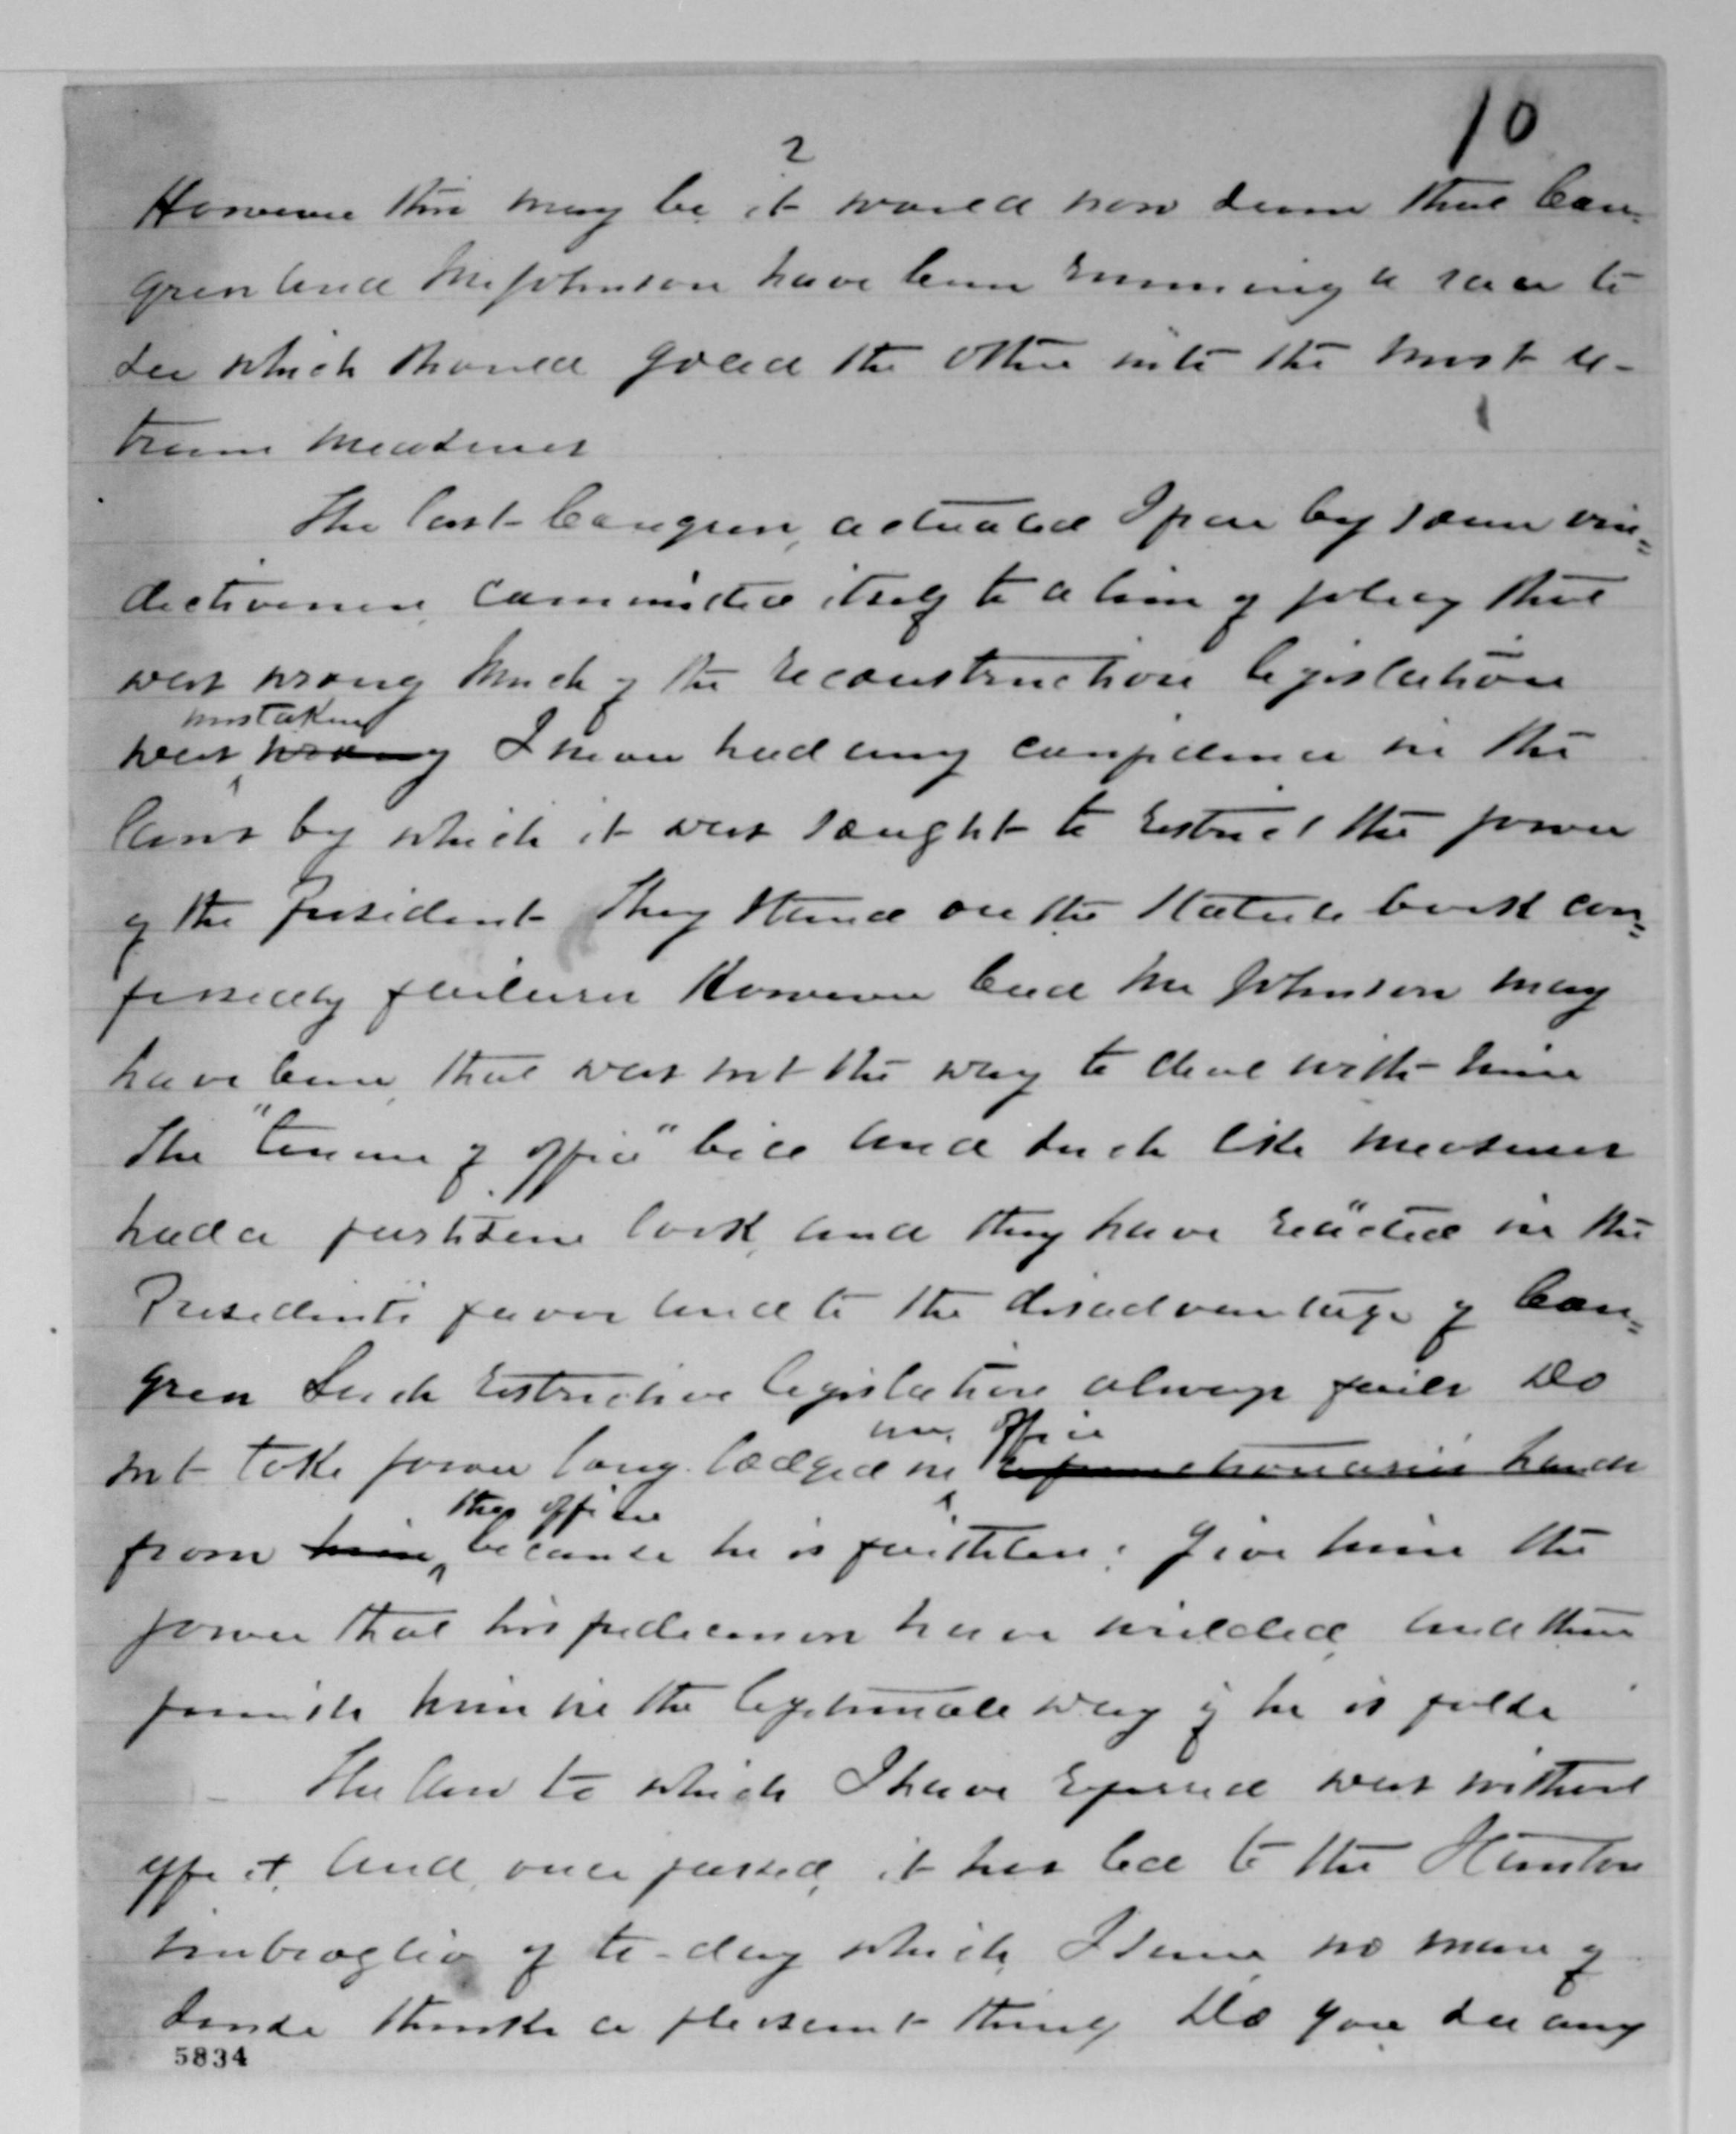 10
2
However this may be it would now seem that Con-
gress and Mr Johnson have been running a race to
see which should goad the other into the most ex-
treme measures
The last Congress, actuated I fear by some vin=
dictiveness, committed itself to a line of policy that
was wrong Much of the reconstruction legislation
mistaken
was wrong I never had any confidence in the
laws by which it was sought to restrict the power
of the President They stand on the statute book con=
fessedly failures However bad Mr Johnson may
have been, that was not the way to deal with him
The "tenure of office" bill and such like measures
had a partisan look, and they have reäcted in the
Presidents favor and to the disadvantage of Con=
gress Such restrictive legislation always fails Do
an office
not take power long lodged in a functionaries hands
the officer
from him, because he is faithless: Give him the
power that his predecessors have wielded, and then
punish him in the legitimate way if he is false
The law to which I have referred was without
effect, and, once passed, it has led to the Stanton
imbroglio of to-day which, I think, no man of
sense thinks a pleasant thing Do you see any
5834